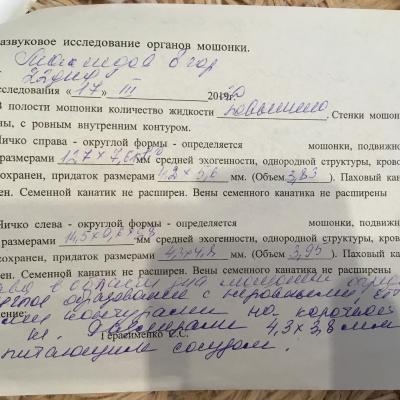 азвуковое исследование органов мошонки.
Егор
22 дня
сследования « 17 » III 2019г.
В полости мошонки количество жидкости повышено. Стенки мошон
ны, с ровным внутренним контуром.
Яичко справа - округлой формы - определяется мошонки, подвижно
размерами 12,7 х 7,6 мм средней эхогенности, однородной структуры, кров
сохранен, придаток размерами 4,2 х 5,6 мм. (Объем 3,83 ). Паховый кан
ен. Семенной канатик не расширен. Вены семенного канатика не расширены
Яичко слева - округлой формы - определяется мошонки, подвижн
размерами 14,5 х мм средней эхогенности, однородной структуры, кров
сохранен, придаток размерами 4,3 х 4,8 мм. (Объем 3,95 ). Паховый кан
ен. Семенной канатик не расширен. Вены семенного канатика не расширены
в области
образование с неровными,
контурами на короткой
ение:
Размерами 4,3 х 3,8 мм
Герасименко С.С.
питающим сосудом.